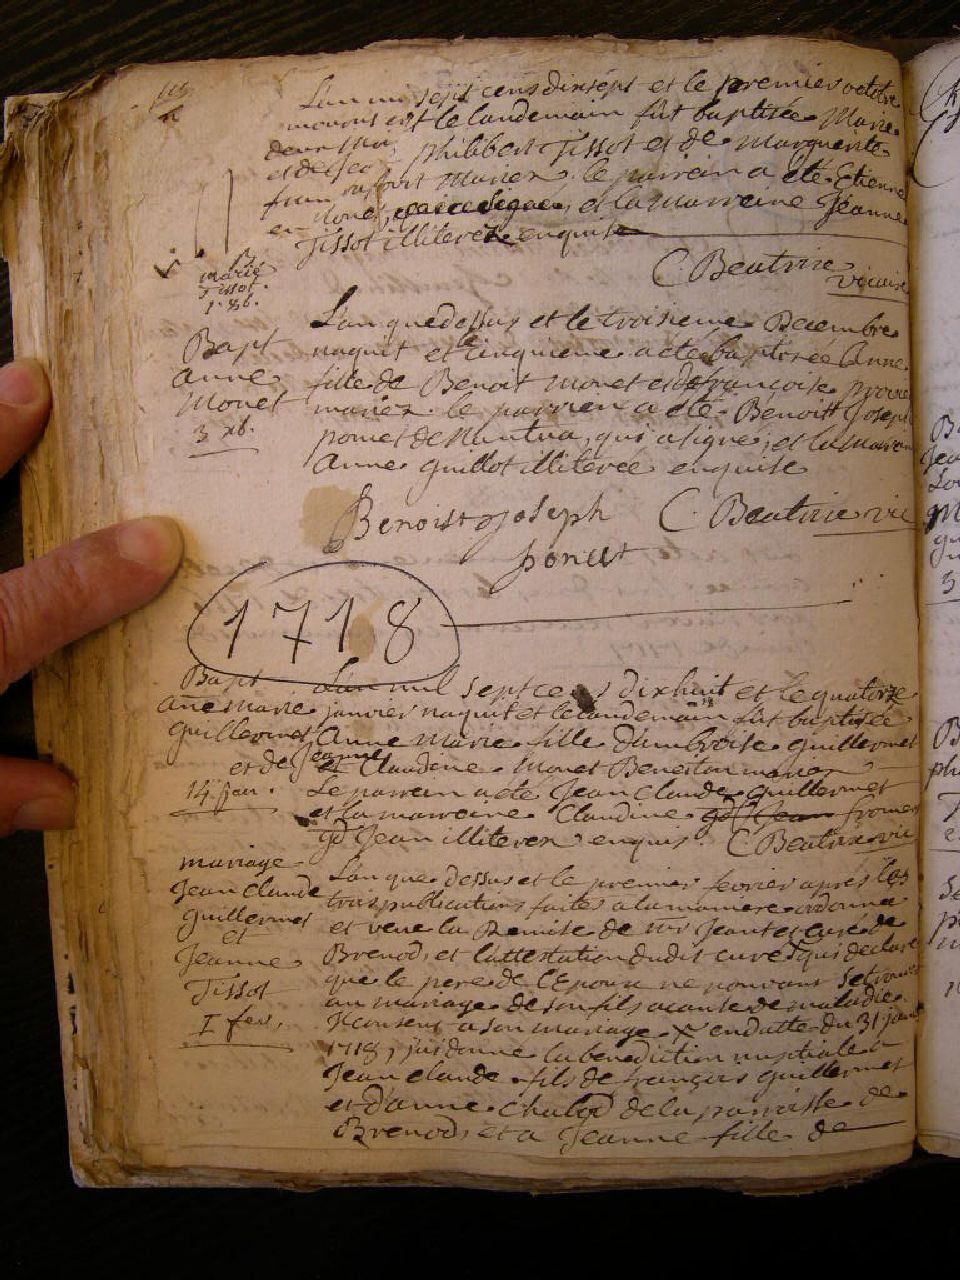 L'an mil sept cens dixsept et le premier
et le landemain fût baptisée Marie
philibert Tissot et de Marguerite
mariez. le parrein a été Etienne
et la marreine Jeanne
Tissot illiterez enquise
C. Beatrix
vicaire
Marie
Tissot
Bapt
Anne
Monet
3 xb.
L'an que dessus et le troisieme Decembre
naquit et le cinquieme a eté baptisée Anne
fille de Benoit Monet et de françoise
mariez. le parrien a été Benoist Joseph
ponet de Nantua, qui a signé, et la marrei
Anne Guillot illiterée enquise
Benoist Joseph
ponet
C. Beatrix vic
1718
Bapt
Ane Marie
Guillermet
14 jan.
L'an mil sept cens dixhuit et le quatorze
janvier naquit et le landemain fût baptisée
Anne Marie fille d'ambroise Guillermet
et de Jeanne Claudene Monet Beneston mariez
Le parrein a eté Jean Claude Guillermet
et la marreine Claudine
Jean illiterez enquis. C. Beatrix vic
mariage
Jean Claude
Guillermet
et
Jeanne
Tissot
1 fev.
L'an que dessus et le premier fevrier après les
trois publications faites a la maniere ordonnée
et veue la Remise de curé de
Brenod, et l'attestation dudit curé qui declare
que le pere de l'Epoux ne pouvant se trouver
au mariage de son fils a cause de maladie
Il consent a son mariage en datte du 31 janv
1718, j'ai donné la benediction nuptiale a
Jean Claude fils de françois Guillermet
et d'anne Chalod de la parroisse de
Brenod, et a Jeanne fille de